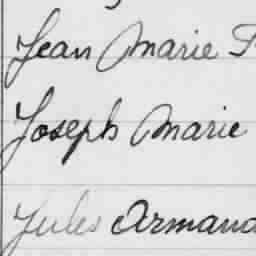 Jean Marie
Joseph Marie
Jules Armand